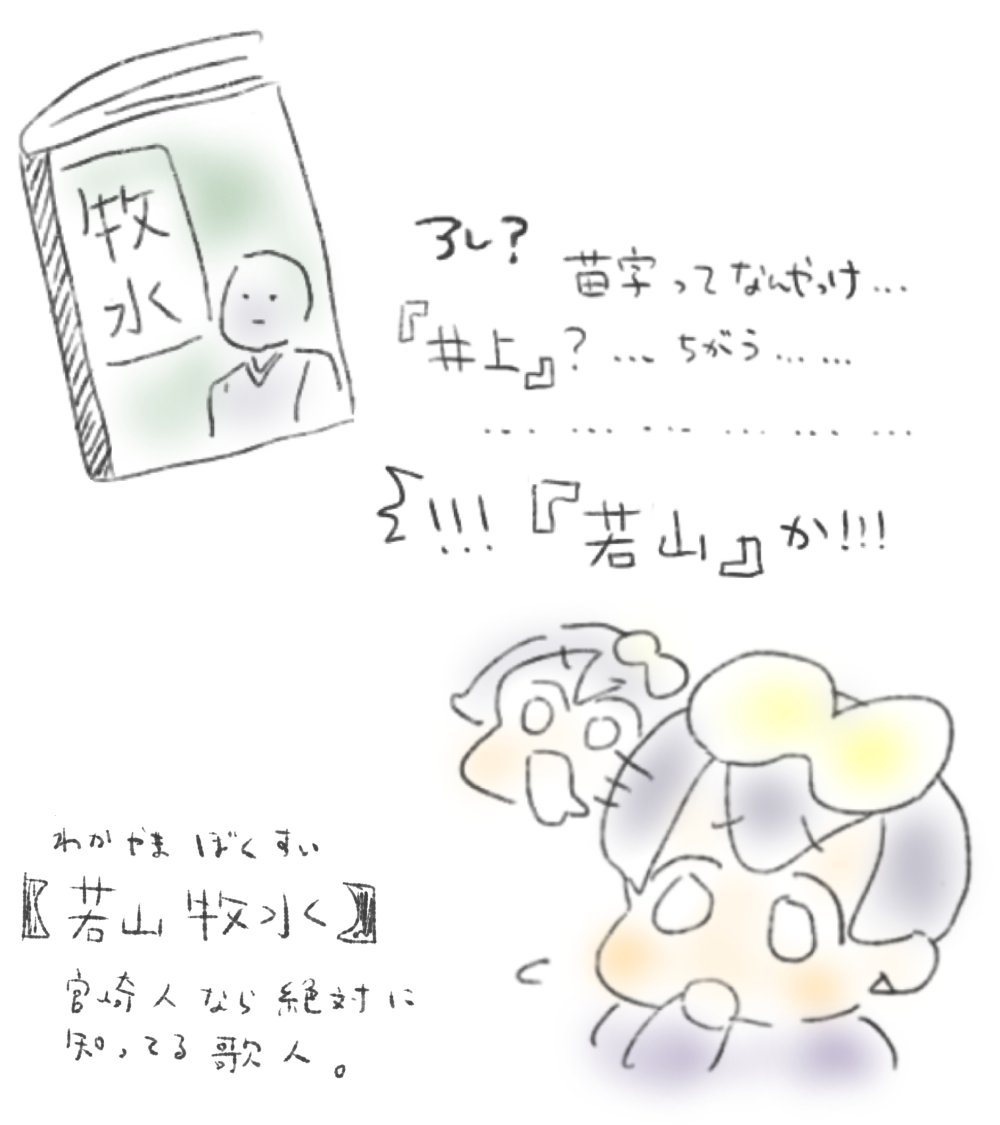 牧水
アレ?
苗字ってなんやっけ…
『井上』?…ちがう……
………………
!!!『若山』か!!!
わかやま ぼくすい
【若山 牧水】
宮崎人なら絶対に
知ってる歌人。